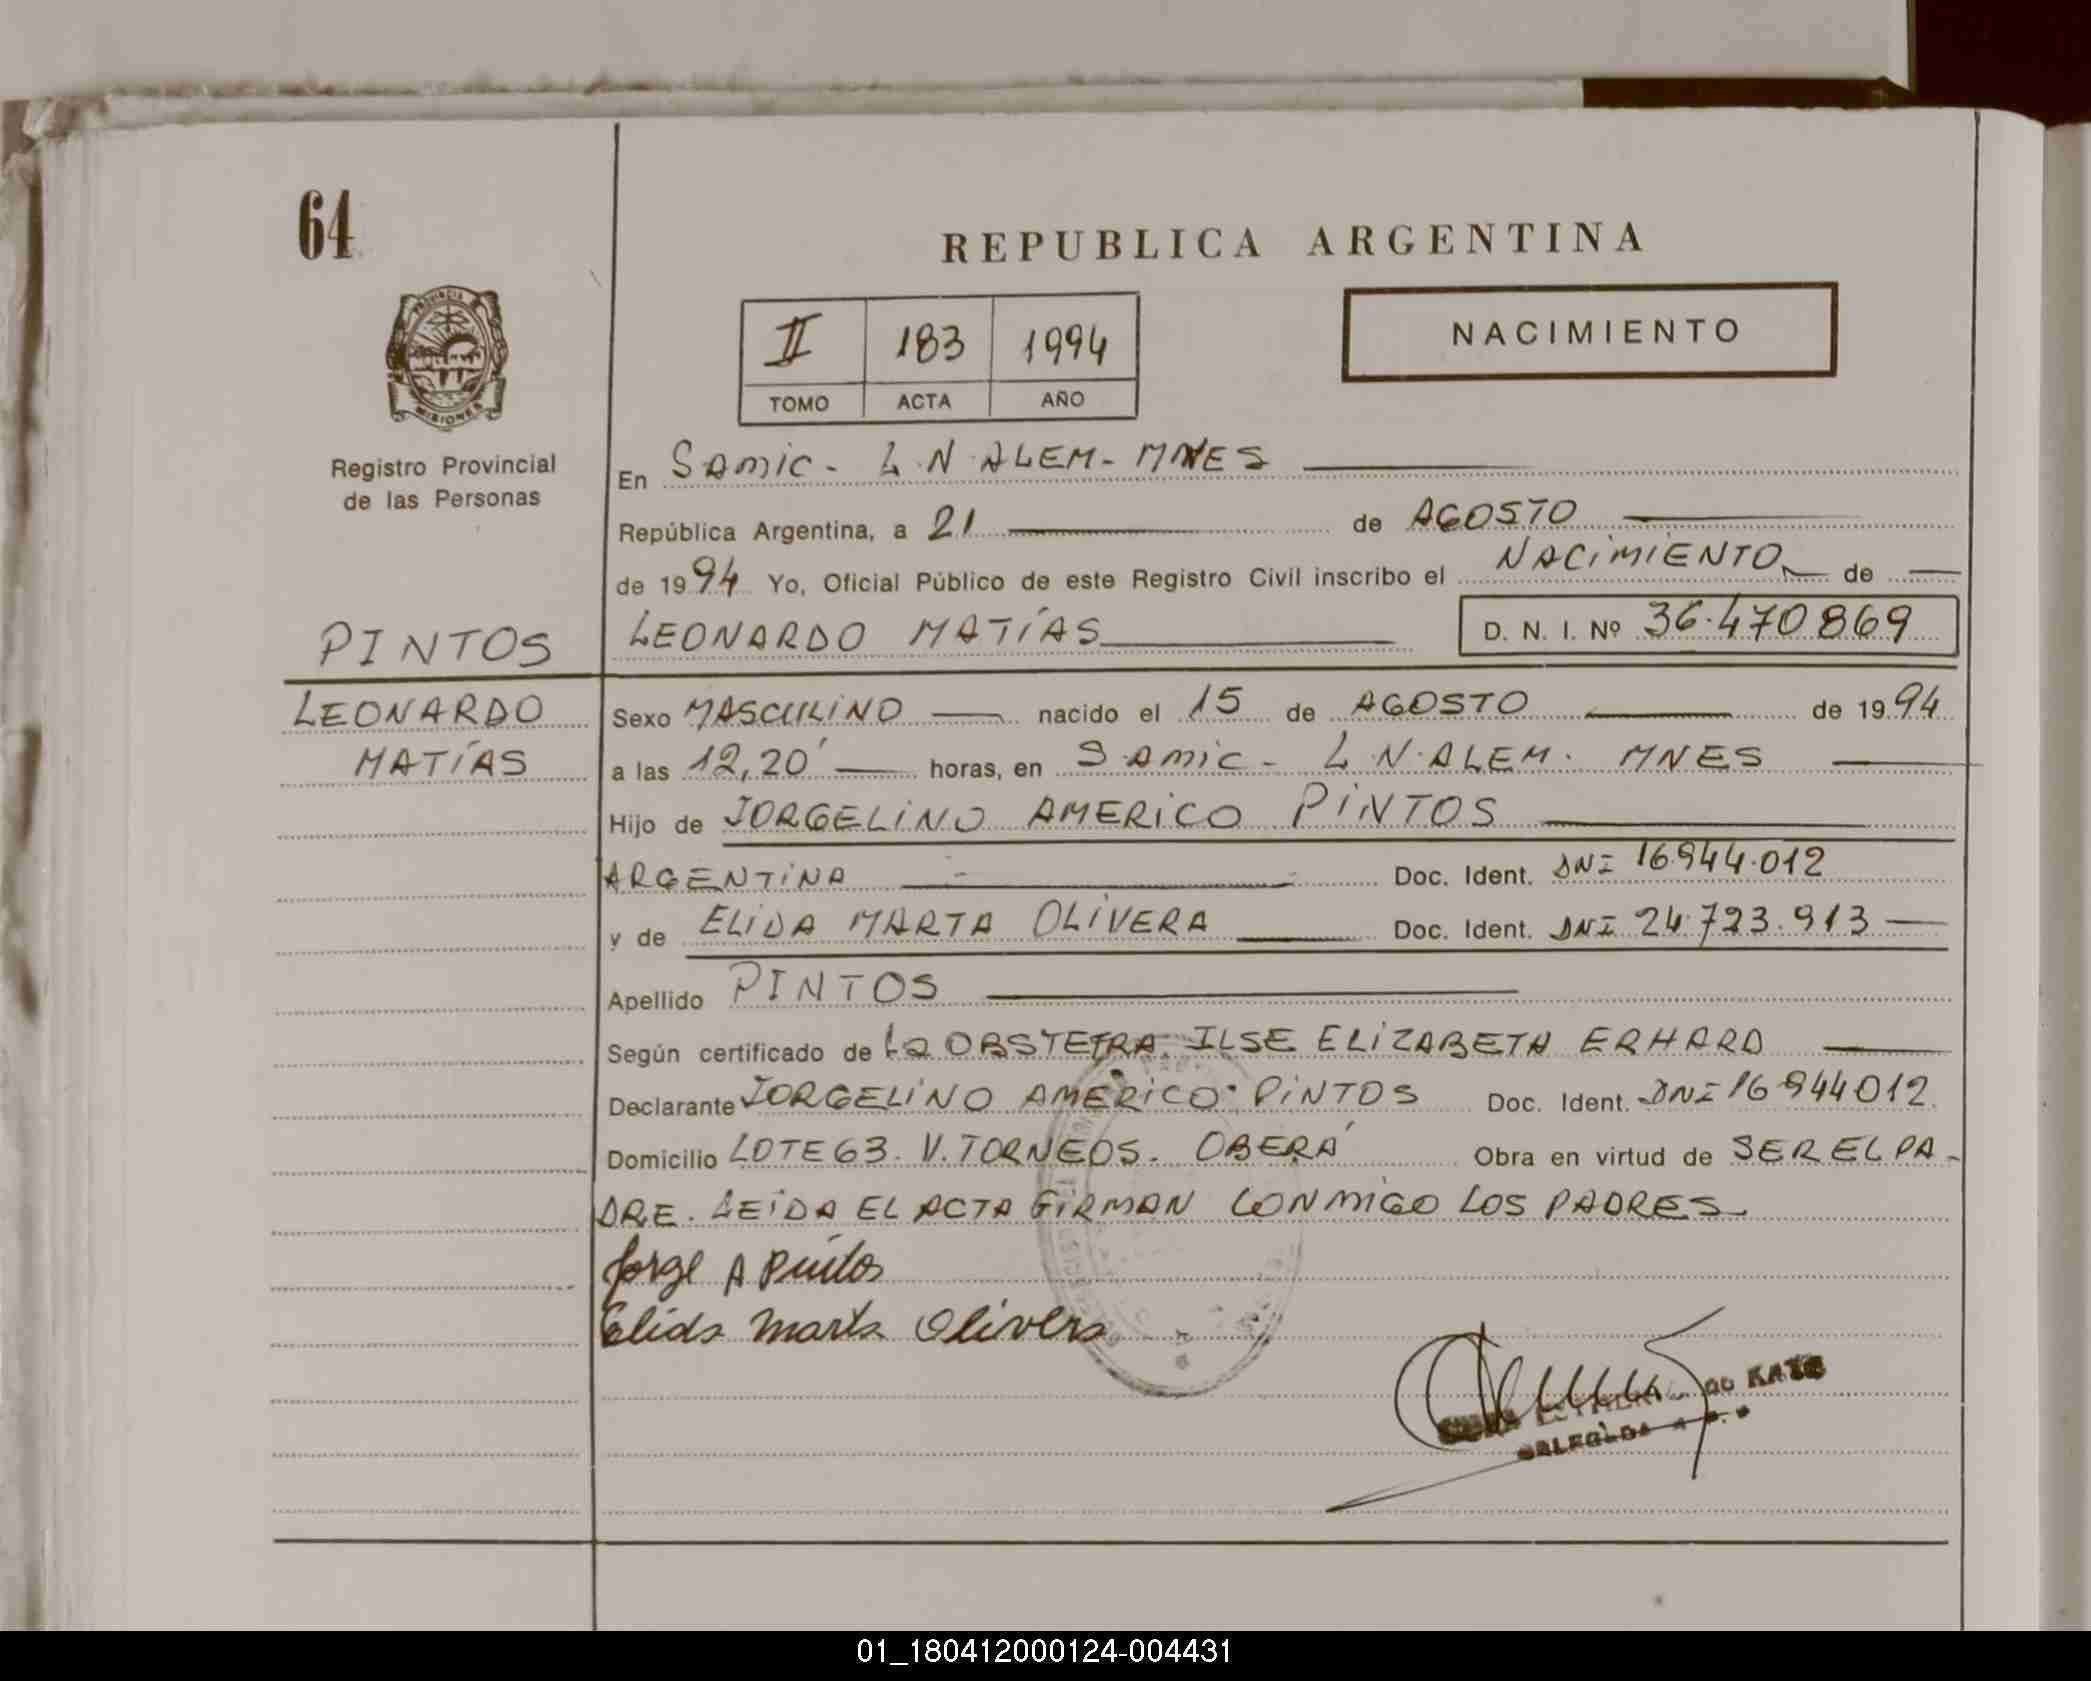 64
REPUBLICA ARGENTINA
PROVINCIA DE
MISIONES
Registro Provincial
de las Personas
II 183 1994
TOMO ACTA AÑO
NACIMIENTO
En Samic - L.N. ALEM - MNES
República Argentina, a 21 de AGOSTO
de 1994 Yo, Oficial Público de este Registro Civil inscribo el NACIMIENTO de
PINTOS
LEONARDO MATÍAS D. N. I. Nº 36.470869
LEONARDO
MATÍAS
Sexo MASCULINO nacido el 15 de AGOSTO de 1994
a las 12,20' horas, en Samic - L.N. ALEM. MNES
Hijo de JORGELINO AMERICO PINTOS
ARGENTINA Doc. Ident. DNI 16.944.012
y de ELIDA MARTA OLIVERA Doc. Ident. DNI 24.723.913
Apellido PINTOS
Según certificado de La OBSTETRA. ILSE ELIZABETH ERHARD
Declarante JORGELINO AMERICO PINTOS Doc. Ident. DNI 16944012
Domicilio LOTE 63. V. TORNEOS. OBERÁ Obra en virtud de SER EL PA-
DRE. LEIDA EL ACTA FIRMAN CONMIGO LOS PADRES
Jorge A Pintos
Elida Marta Olivera
KATZ
01_180412000124-004431